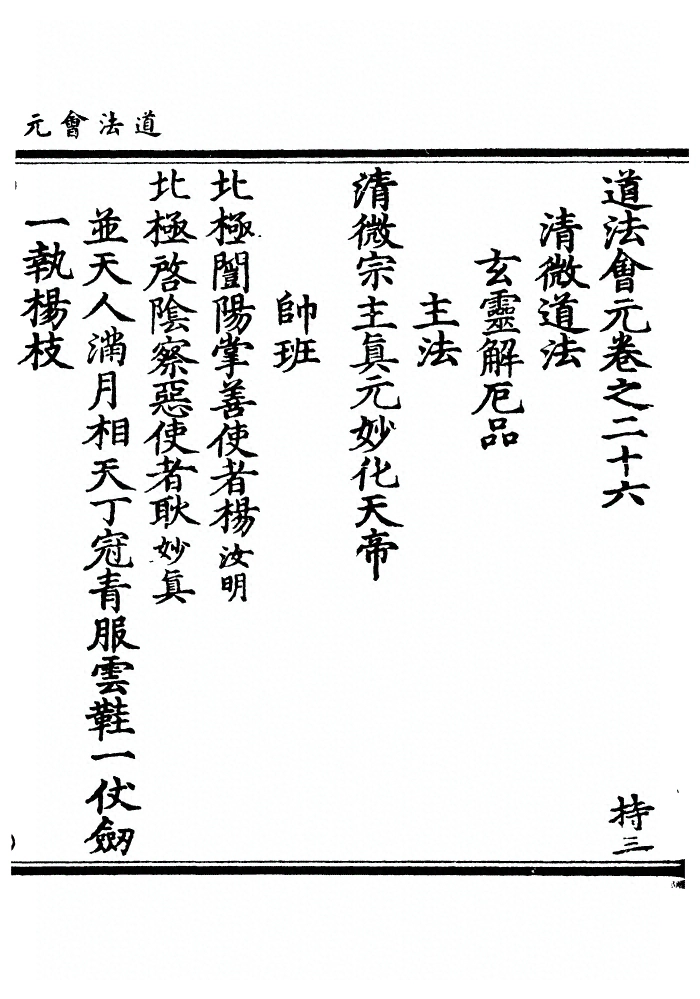 道法會元
道法會元卷之二十六
持三
清微道法
玄靈解厄品
主法
清微宗主真元妙化天帝
帥班
北極闓陽掌善使者楊汝明
北極啓陰察惡使者耿妙真
並天人滿月相天丁冠青服雲鞋一仗劒
一執楊枝